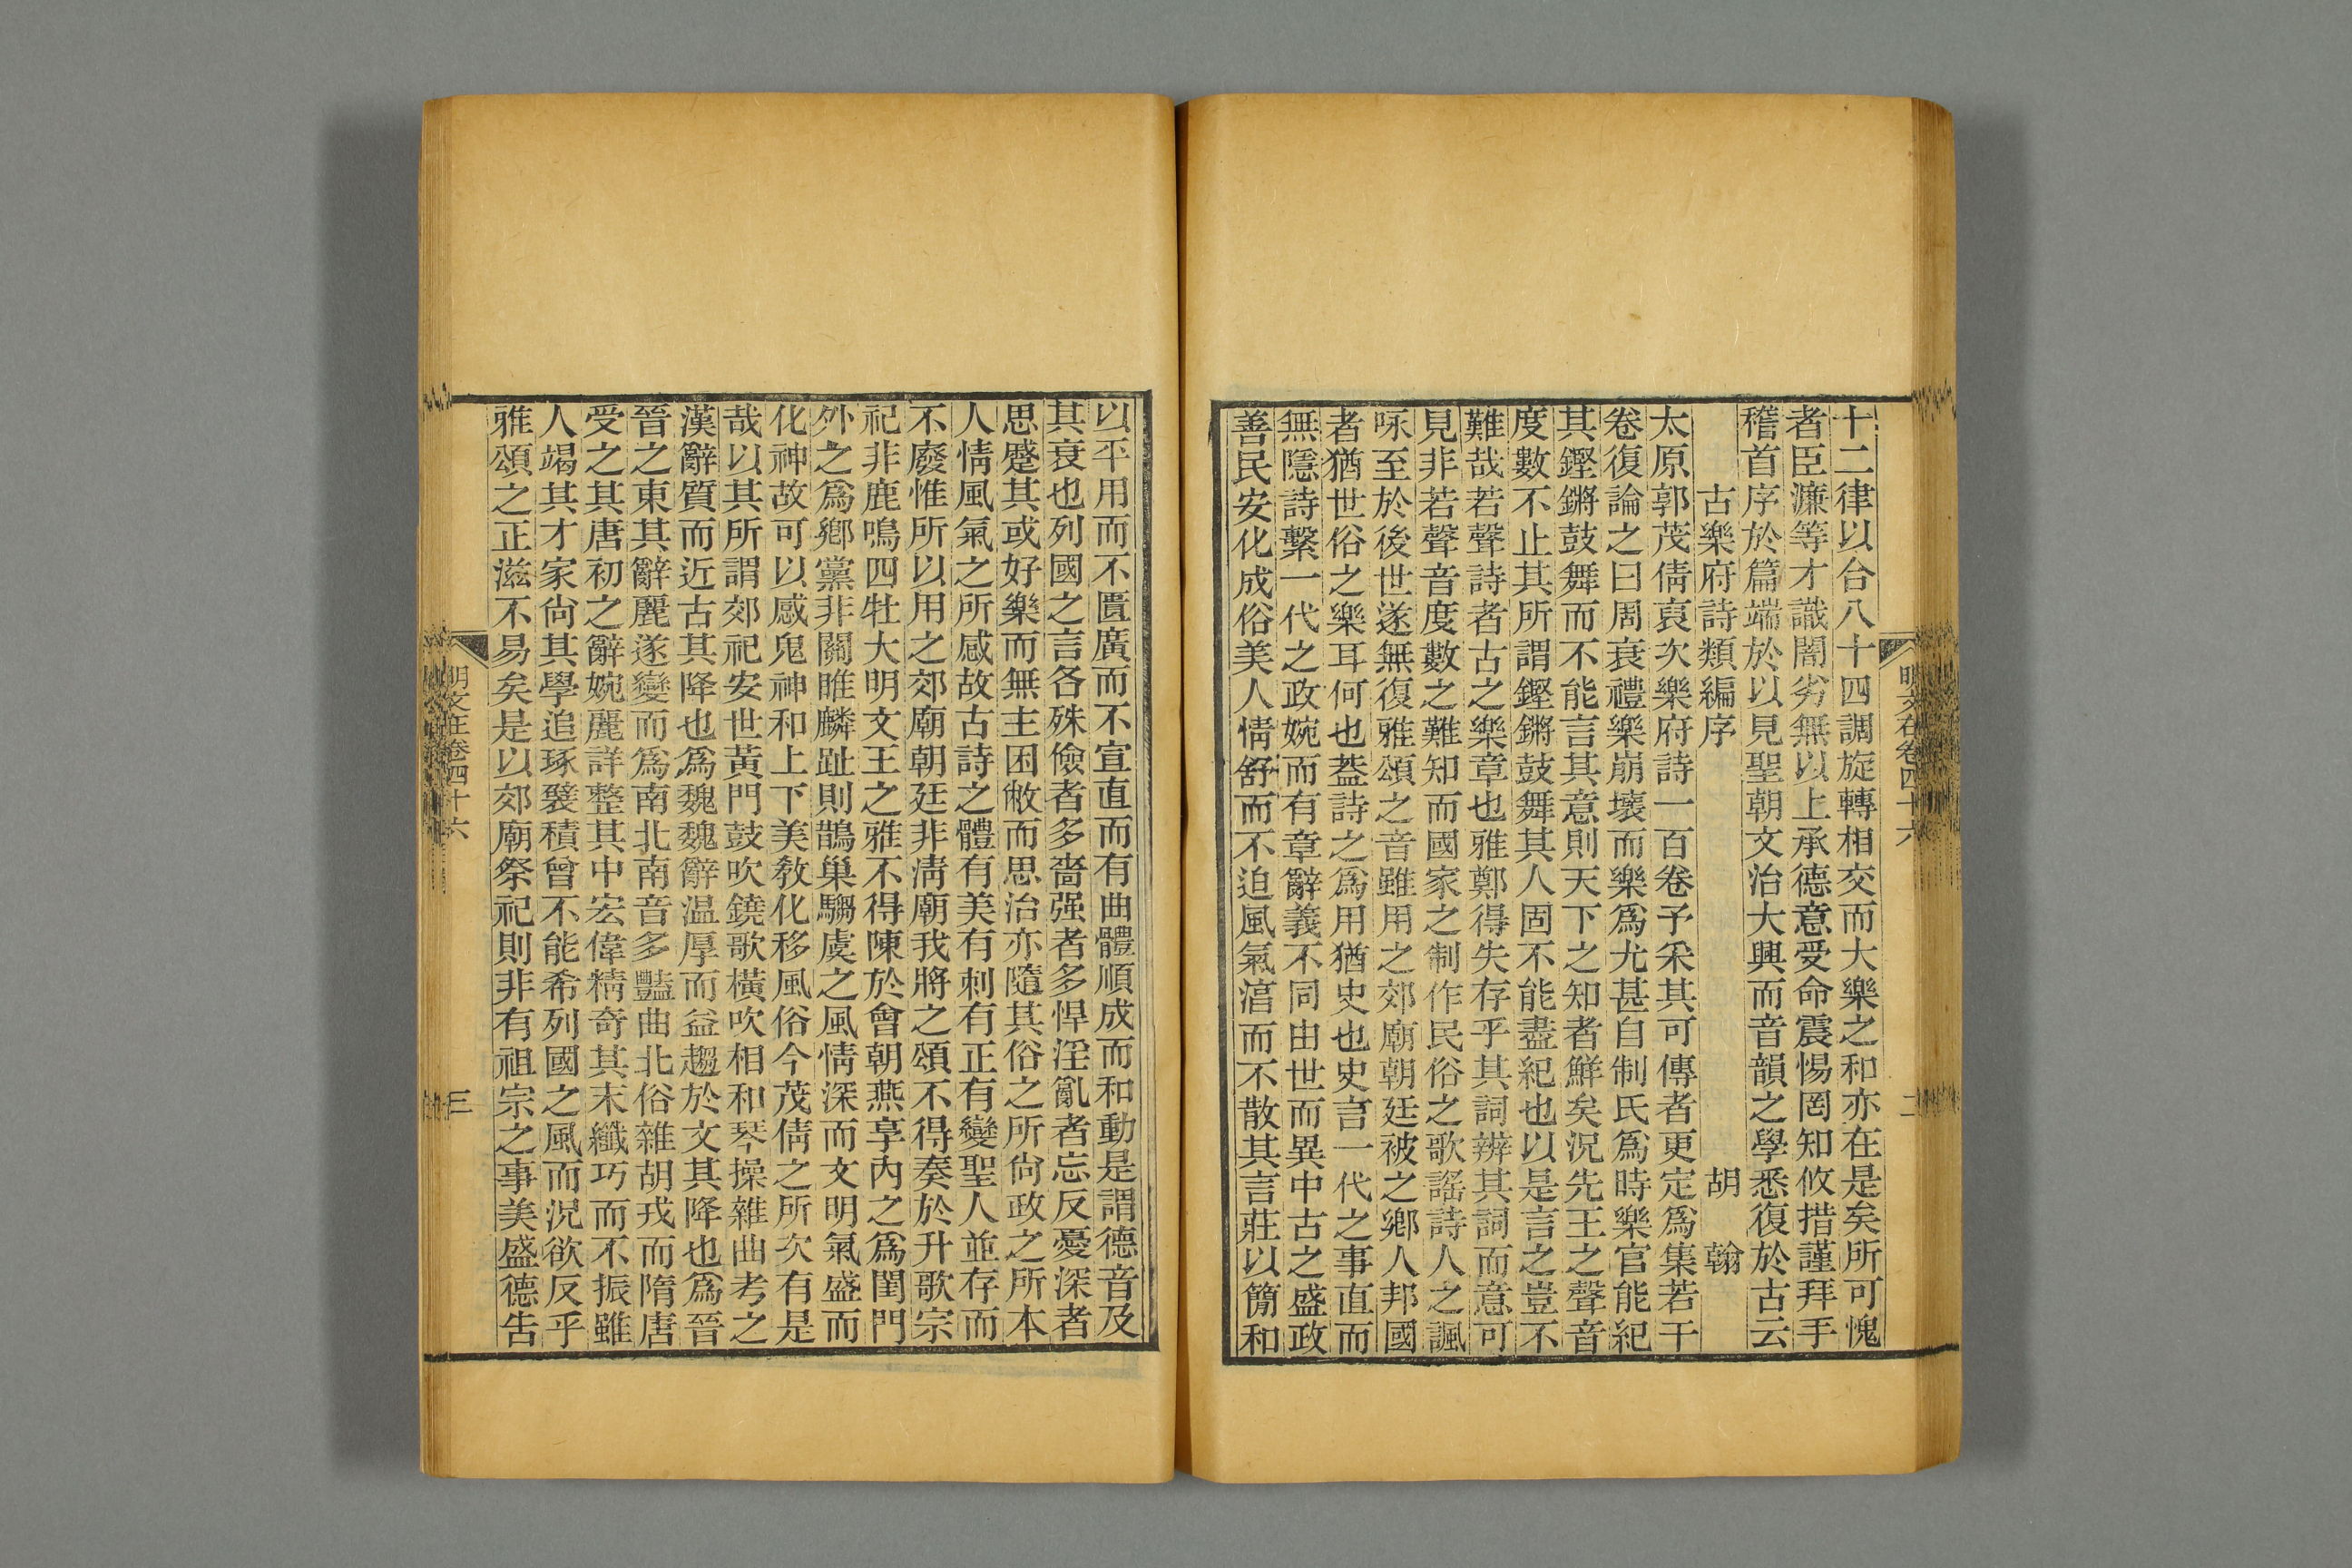 十二律以合八十四調旋轉相交而大樂之和亦在是矣所可愧
者臣濂等才識闇劣無以上承德意受命震惕罔知攸措謹拜手
稽首序於篇端於以見聖朝文治大興而音韻之學悉復於古云
古樂府詩類編序 胡翰
太原郭茂倩裒次樂府詩一百卷予采其可傳者更定爲集若干
卷復論之曰周衰禮樂崩壞而樂爲尤甚自制氏爲時樂官能紀
其鏗鏘鼓舞而不能言其意則天下之知者鮮矣況先王之聲音
度數不止其所謂鏗鏘鼓舞其人固不能盡紀也以是言之豈不
難哉若聲詩者古之樂章也雅鄭得失存乎其詞辨其詞而意可
見非若聲音度數之難知而國家之制作民俗之歌謠詩人之諷
咏至於後世遂無復雅頌之音雖用之郊廟朝廷被之鄉人邦國
者猶世俗之樂耳何也葢詩之爲用猶史也史言一代之事直而
無隱詩繫一代之政婉而有章辭義不同由世而異中古之盛政
善民安化成俗美人情舒而不迫風氣湻而不散其言莊以簡和
以平用而不匱廣而不宣直而有曲體順成而和動是謂德音及
其衰也列國之言各殊儉者多嗇强者多悍淫亂者忘反憂深者
思蹙其或好樂而無主困敝而思治亦隨其俗之所尙政之所本
人情風氣之所感故古詩之體有美有刺有正有變聖人並存而
不廢惟所以用之郊廟朝廷非淸廟我將之頌不得奏於升歌宗
祀非鹿鳴四牡大明文王之雅不得陳於會朝燕享內之爲閨門
外之爲鄉黨非關睢麟趾則鵲巢騶虞之風情深而文明氣盛而
化神故可以感鬼神和上下美敎化移風俗今茂倩之所次有是
哉以其所謂郊祀安世黃門鼓吹鐃歌橫吹相和琴操雜曲考之
漢辭質而近古其降也爲魏魏辭温厚而益趨於文其降也爲晉
晉之東其辭麗遂變而爲南北南音多豔曲北俗雜胡戎而隋唐
受之其唐初之辭婉麗詳整其中宏偉精奇其末纖巧而不振雖
人竭其才家尙其學追琢襞積曾不能希列國之風而況欲反乎
雅頌之正滋不易矣是以郊廟祭祀則非有祖宗之事美盛德告
明文在卷四十六 二
明文在卷四十六 三